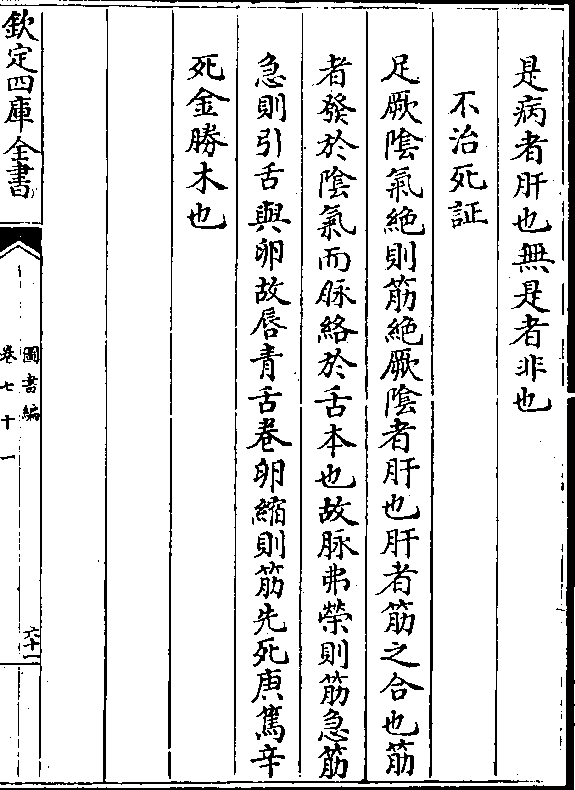 是病者肝也無是者非也
不治死証
足厥陰氣絶則筋絶厥陰者肝也肝者筋之合也筋
者發於陰氣而脉絡於舌本也故脉弗榮則筋急筋
急則引舌與卵故唇青舌卷卵縮則筋先死庚篤辛
死金勝木也
欽定四庫全書
圖書編
卷七十一
六十二